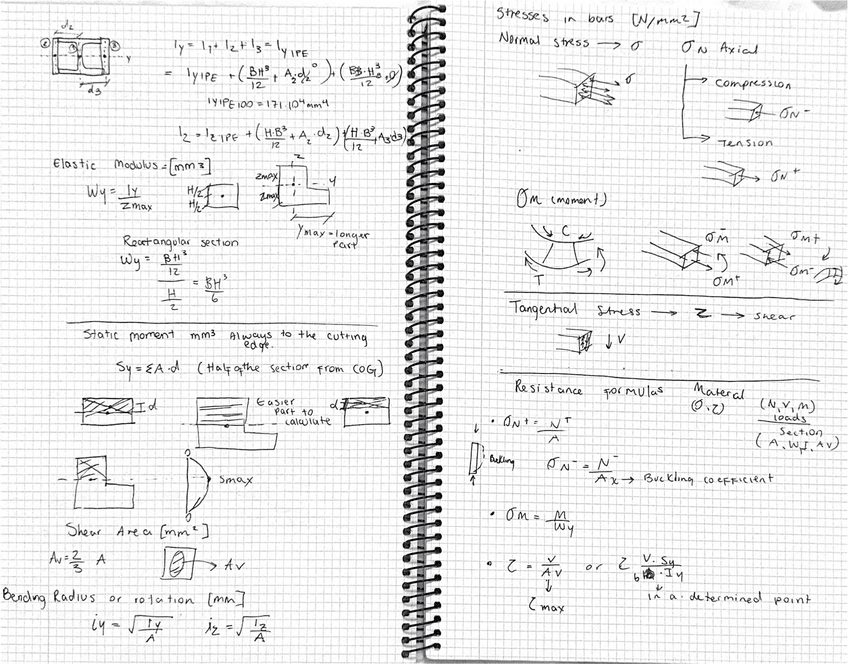 d2
② ① ③ y
d3
Iy = I1 + I2 + I3 = Iy IPE
= Iy IPE + (BH³/12 + A2·d2⁰) + (BB·H³/12
Iy IPE 100 = 171·10⁴ mm⁴
Iz = Iz IPE + (H·B³/12 + A2·d2) + (H·B³/12 + A3·d3)
Elastic Modulus = [mm3]
Wy = Iy/Zmax
H/2
H/2
z
zmax
zmax
y
ymax = longer
part
Rectangular section
Wy = BH³/12 / H/2 = BH³/6
Static moment mm³ Always to the cutting
edge.
Sy = ΣA·d (Half of the section from COG)
d
Easier
part to
calculate
d
0
Smax
0
Shear Area [mm²]
Av = 2/3 A
Av
Bending Radius or rotation [mm]
iy = √Iy/A iz = √Iz/A
Stresses in bars [N/mm²]
Normal stress → σ
σ
σN Axial
compression
σN-
Tension
σN+
σM (moment)
C
T
σM-
σM+
σM+
σM-
Tangential stress → τ → shear
V
Resistance formulas
Material
(σ,τ)
(N,V,M)
loads
section
(A, W, I, AV)
• σN+ = N+/A
Buckling
σN- = N-/Aχ → Buckling coefficient
• σM = M/Wy
• τ = V/AV or τ V·Sy/b·Iy
τmax
in a determined point